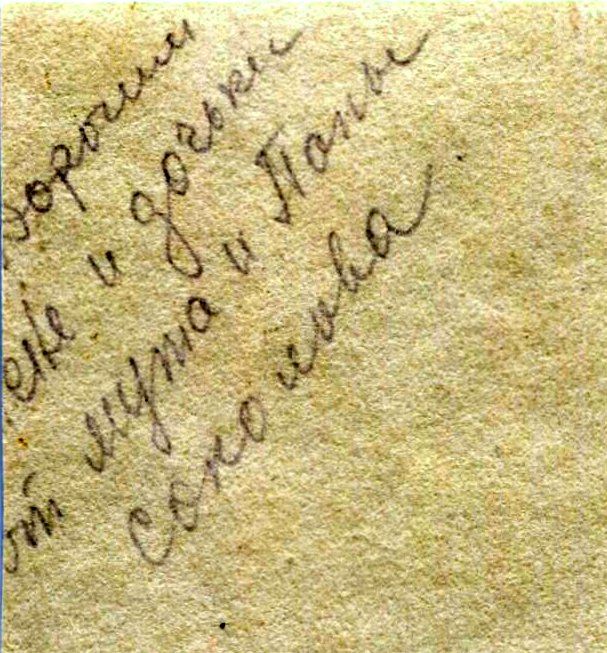 Дорогим
жене и дочьки
от мужа и Папы
соколова.